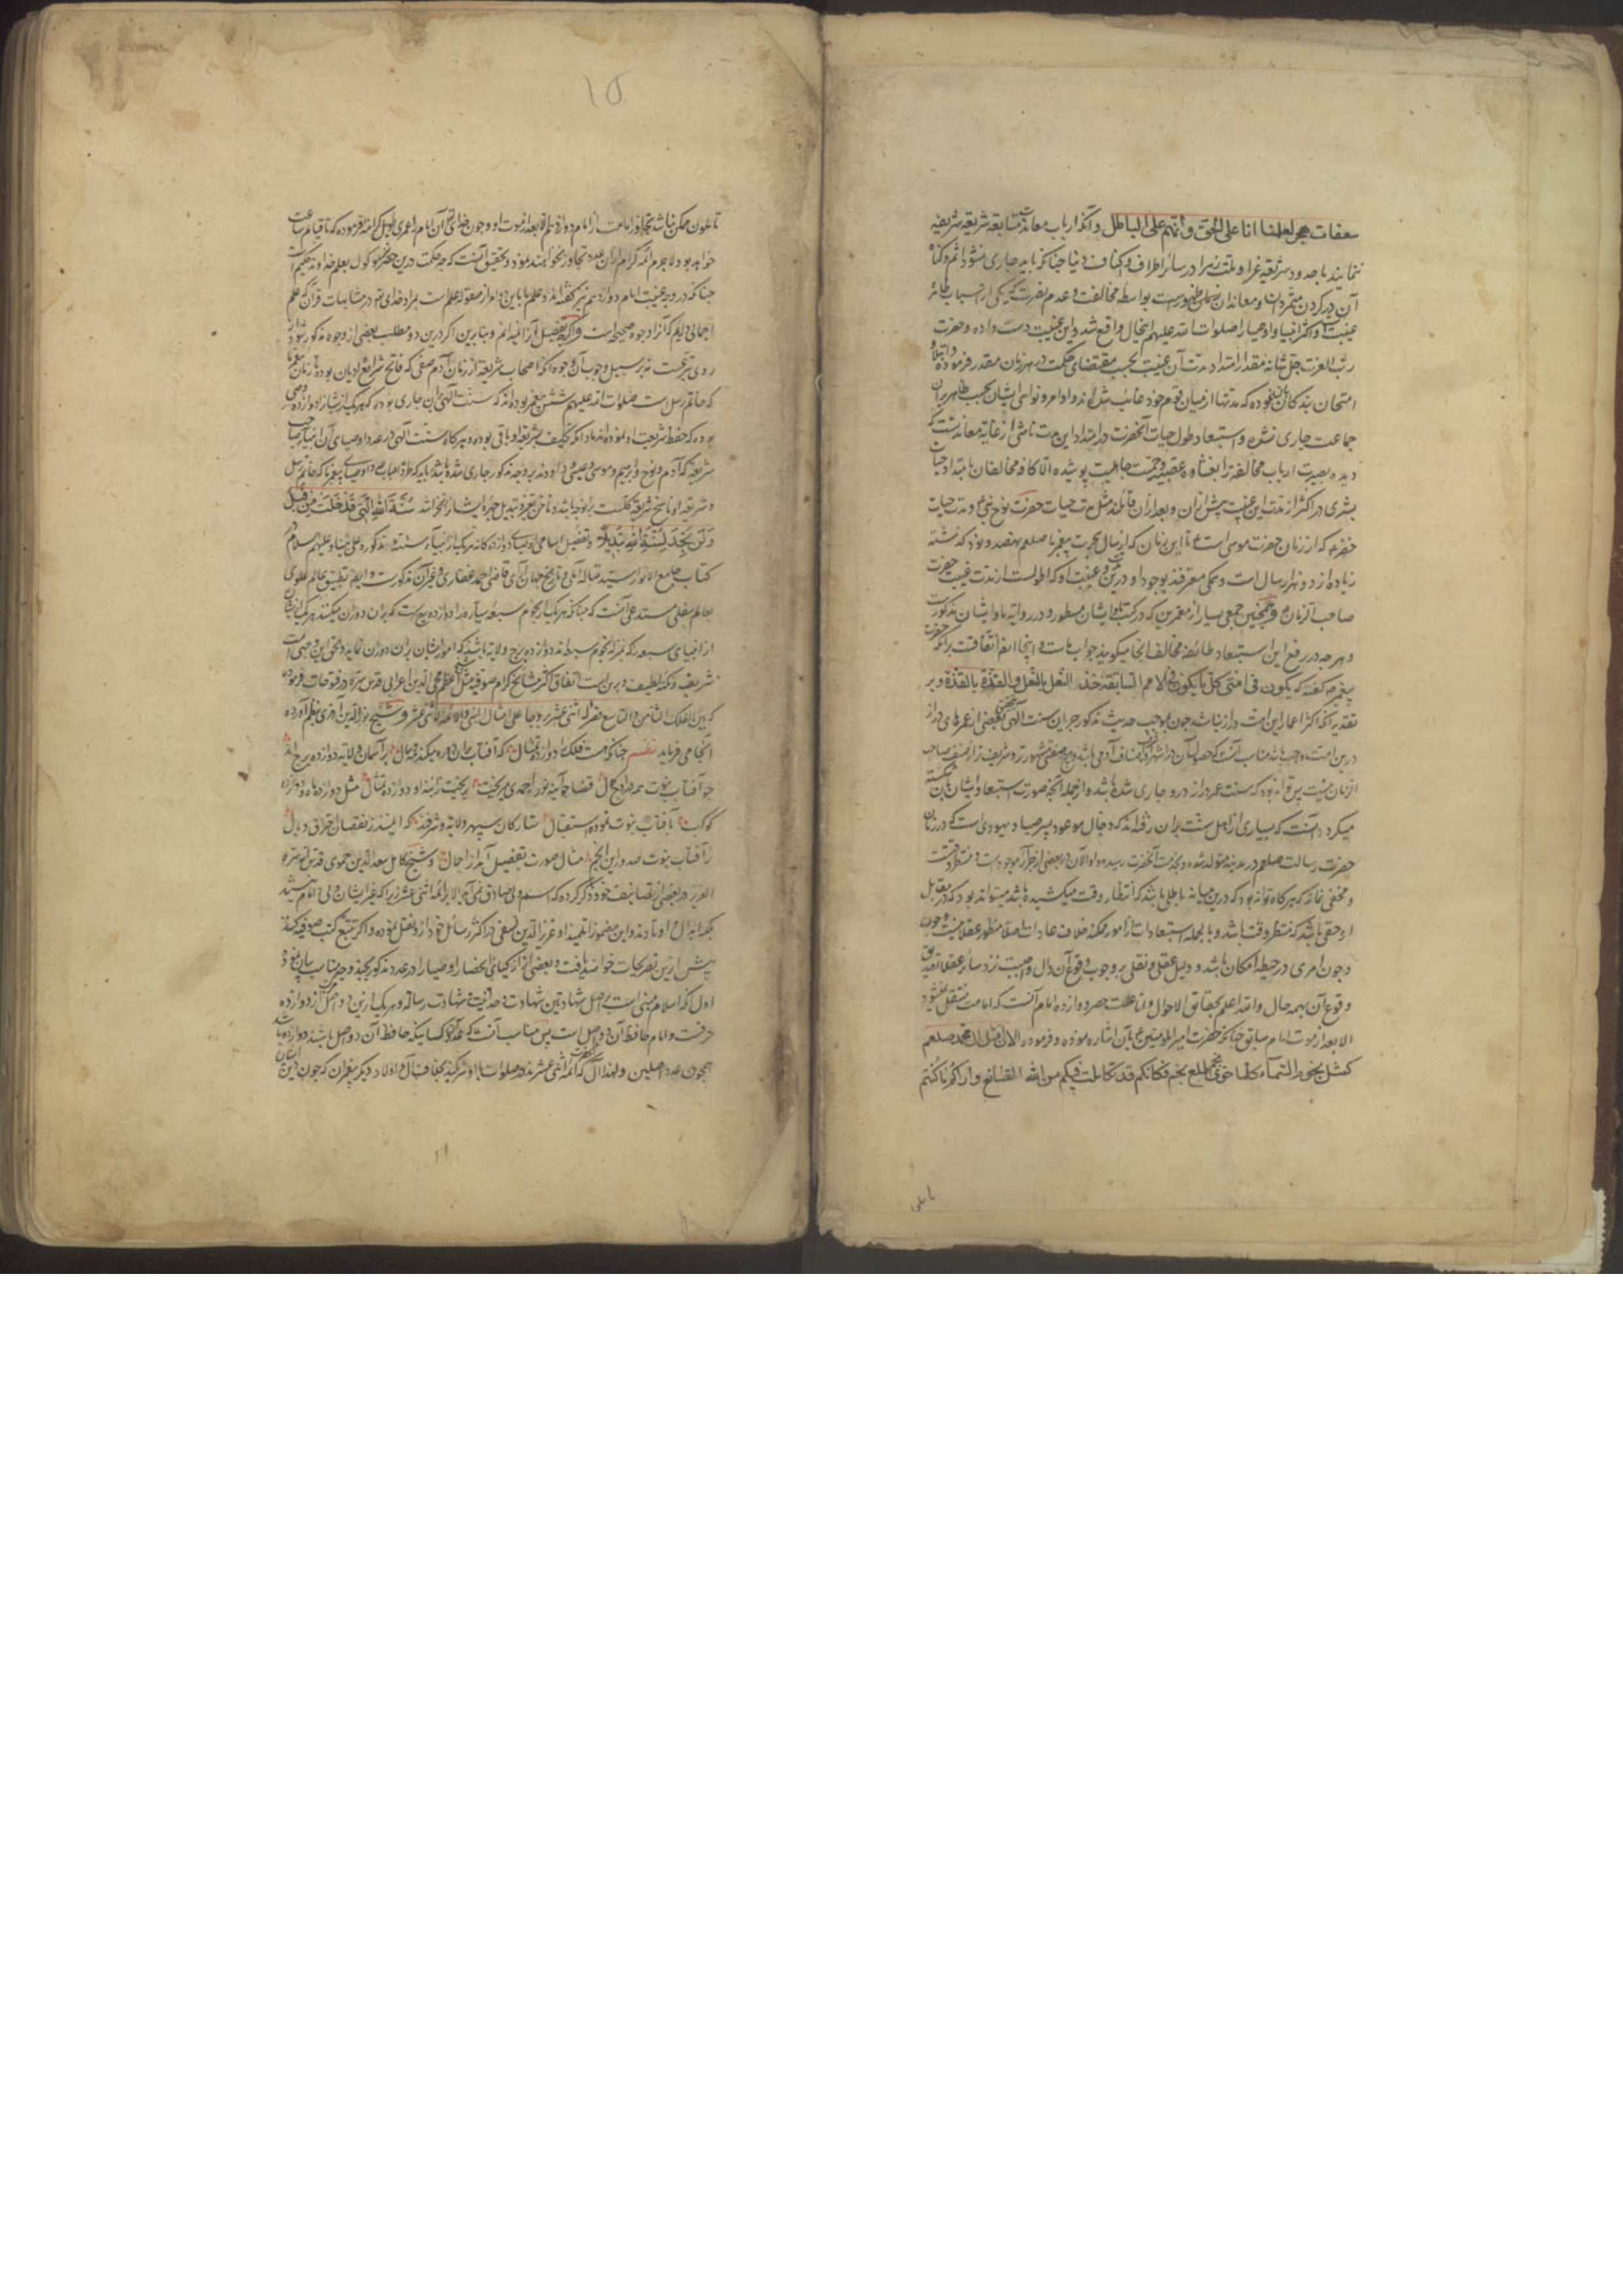 سعفات هجر لعلمنا انا على الحق وانهم على الباطل و آنکه ارباب معاندت متابعة شریعة شریفه
ننمایند با حدود شریعه غرا و ملت زهرا در سائر اطراف و اکناف دنیا چنانکه باید جاری نشود اثم و گناه
آن در گردن متمردان و معاندان بواسطه مخالفت و عدم نصرت که یکی از اسباب ظاهر
غیبت و اکثر انبیا و اوصیا را صلوات الله علیهم اینحال واقع شد و این غیبت دست داده و حضرت
رب العزت جل شانه مقدار امتداد مدت آن غیبت بحسب مقتضای حکمت در هر زمان مقدر فرموده و ابتلا و
امتحان بندکان نموده که مدتها از میان قوم خود غائب شده اند و اوامر و نواهی ایشان بحسب ظاهر بران
جماعت جاری نشده و استبعاد طول حیات آنحضرت در امتداد این مدت ناشی از غایة معاندتست که
دیده بصیرت ارباب مخالفة را بغشاوه عصبیة و حمیت جاهلیت پوشیده والا کافه مخالفان بامتداد حیات
بشری در اکثر از مدت این غیبت پیش ازان و بعد ازان قایلند مثل مدت حیات حضرت نوح نبی و مدت حیات
خضر که از زمان حضرت موسی است تا این زمان که از سال هجرت پیغمبر ما صلعم نهصد و نود گذشته
زیاده از دو هزار سال است و همکی معترفند بوجود او درین و غیبت او که اطولست از مدت غیبت حضرت
صاحب الزمان و همچنین جمعی بسیار از معمرین که در کتب ایشان مسطور و در روایة ما و ایشان مذکورست
و هر چه در رفع این استبعاد طائفه مخالف انجا میکویند جواب ماست و اینجا ایضا اتفاقست برانکه حضرت
پیغمبر گفته که یکون فی امتی کل ما یکون فی الامم السابقة حذو النعل بالنعل والقذة بالقذة و بر
تقدیر آنکه اکثر اعمار این امت دراز نباشد چون بموجب حدیث مذکور جریان سنت الهی بعضی از عمرهای دراز
درین امت واجب باشد مناسب آنست که
الزمان نیست پس تواند بود که سنت عمر دراز درو جاری شده باشد و از جمله آنچه صورت استبعاد ایشان را شکسته
میکرداند آنست که بسیاری از اهل سنت بران رفته اند که دجال موعود پسر صیاد یهودی است که در زمان
حضرت رسالت صلعم در مدینه متولد شده و بخدمت آنحضرت رسیده و او الآن در بعضی از جزائر موجود است و منتظر وقتست
و مخفی نماند که هرکاه تواند بود که درین میانه باطلی باشد که انتظار وقت میکشیده باشد میتواند بود که در مقابل
او حقی باشد که منتظر وقت باشد و بالجمله استبعاد امتداد امور ممکنه خلاف عادات اصلا منظور عقلا نیست و چون
وجود امری در حیطه امکان باشد و دلیل عقلی و نقلی بر وجوب وقوع آن دال واجبست نزد سائر عقلا تصدیق
وقوع آن بهمه حال والله اعلم بحقائق الاحوال و اما علت حصر دوازده امام آنست که امامت منتقل نمیشود
الا بعد از موت امام سابق چنانکه حضرت امیرالمومنین ع بآن اشاره نموده و فرموده الا ان مثل آل محمد صلعم
کمثل نجوم السماء کلما خوی نجم طلع نجم فکانکم قد تکاملت فیکم من الله الصنائع و اراکم ما کنتم
تاملون
۱۵
تاملون ممکن نباشد تجاوز امامت از امام دوازدهم الا بعد از موت او و چون خدای تع آن امام را عمری طویل کرامت فرموده که تا قیام ساعت
خواهد بود لاجرم ائمه کرام ازان عدد تجاوز نخواهند نمود و تحقیق آنست که چه حکمت درین حصر موکول بعلم خداوند حکیم است
چنانکه در وجه غیبت امام دوازدهم نیز گفته اند و علم ما باین دو امر از مقوله علم است بمراد خدای تع در متشابهات قرآن که علم
اجمالی داریم که آنرا وجوه صحیحه است و اگرچه تفصیل آنرا ندانیم و بنابرین اگر درین دو مطلب بعضی از وجوه مذکور شود از
روی تبرعست نه بر سبیل وجوب آن وجوه آنکه اصحاب شریعة از زمان آدم صفی که فاتح شرائع و ادیان بوده تا زمان پیغمبر ما
که خاتم رسل است صلوات الله علیهم شش پیغمبر بوده اند که سنت الهی بران جاری بوده که هر یک از ایشان را دوازده وصی
بوده که حفظ شریعت او نموده اند مادام که تکلیف بشریعة او باقی بوده و هرکاه سنت الهی در عدد اوصیای آن انبیا صاحب
شریعة که آدم و نوح و ابرهیم و موسی و عیسی و داودند بر وجه مذکور جاری شده باشد باید که
و شریعة او ناسخ شریعة کلست برانوجه باشد و ناخن تغیر و تبدیل چهره ایشان را نخراشد سُنَّةَ اللهِ الَّتِی قَدْ خَلَتْ مِن قَبْلُ
وَلَن تَجِدَ لِسُنَّةِ اللهِ تَبْدِیلًا و تفصیل اسامی اوصیای دوازده کانه هر یک از انبیاء سته مذکوره علی نبینا و علیهم السلام در
کتاب جامع الانوار سید متاله آملی و تاریخ جهان آرای قاضی احمد غفاری و غیر آن مذکورست و ایضا تطبیق عالم علوی
بعالم سفلی مستدعی آنست که چنانکه هر یک از نجوم سبعه سیاره را دوازده برج است که بران دوران میکنند هر یک از ایشان
از انبیای سبعه را که بمنزله نجوم سبعه اند دوازده برج ولایة باشد که امور ایشان بران دوران نماید و بحق این وجهی است
شریف و نکته لطیف و برین است اتفاق اکثر مشائخ کرام صوفیه مثل شیخ اعظم محی الدین اعرابی قدس سره در فتوحات فرموده
که بین الفلک الثامن و التاسع قصر له اثنی عشر برجا علی مثال النبی و الائمة الاثنی عشر و شیخ نورالدین آذری بنظم آورده
انجا می فرماید نظم چنانکه هست فلک را دوازده تمثال که آفتاب بران دوره میکند مه و سال بر آسمان ولایة دوازده برج اند
چو آفتاب نبوت همه باوج کمال قضا چو آینه نور احمدی میریخت بریخت زاینه او دوازده تمثال مثل دوازده ماه و دوازده
کوکب بآفتاب نبوت نموده استقبال ستارکان سپهر ولایة و شرفند که ایمنند ز نقصان احتراق و وبال
ز آفتاب نبوت صد و این انجم مثال صورت تفصیل آمد از اجمال و شیخ کامل سعدالدین حموی قدس سره
العزیز در بعضی از تصانیف خود ذکر کرده که اسم ولی صادق نمی آید الا بر ائمه اثنی عشر زیرا که غیر ایشان ولی و امام نیستند
بلکه ابدال و اوتادند و این مضمون را تلمیذ او عزیزالدین نسفی در اکثر رسائل خود ازو نقل نموده و اگر تتبع کتب صوفیه کنند
بیش ازین تصریحات خواهند یافت و بعضی از ازکیای انحصار اوصیا را در عدد مذکور بچند وجه مناسب بیان نموده
اول آنکه اسلام مبنی است بر اصل شهادتین شهادت وحدانیت و شهادت رسالة و هر یک ازین دو اصل از دوازده
حرفست و امام حافظ آن دو اصل است پس مناسب آنست که عدد کسانیکه حافظ آن دو اصل باشند دوازده باشد
همچون عدد اصلین و لهذا آل آنحضرت که ائمه اثنی عشرند در صلوات با او شریکند بخلاف آل و اولاد دیگر پیغمبران که چون دین ایشان